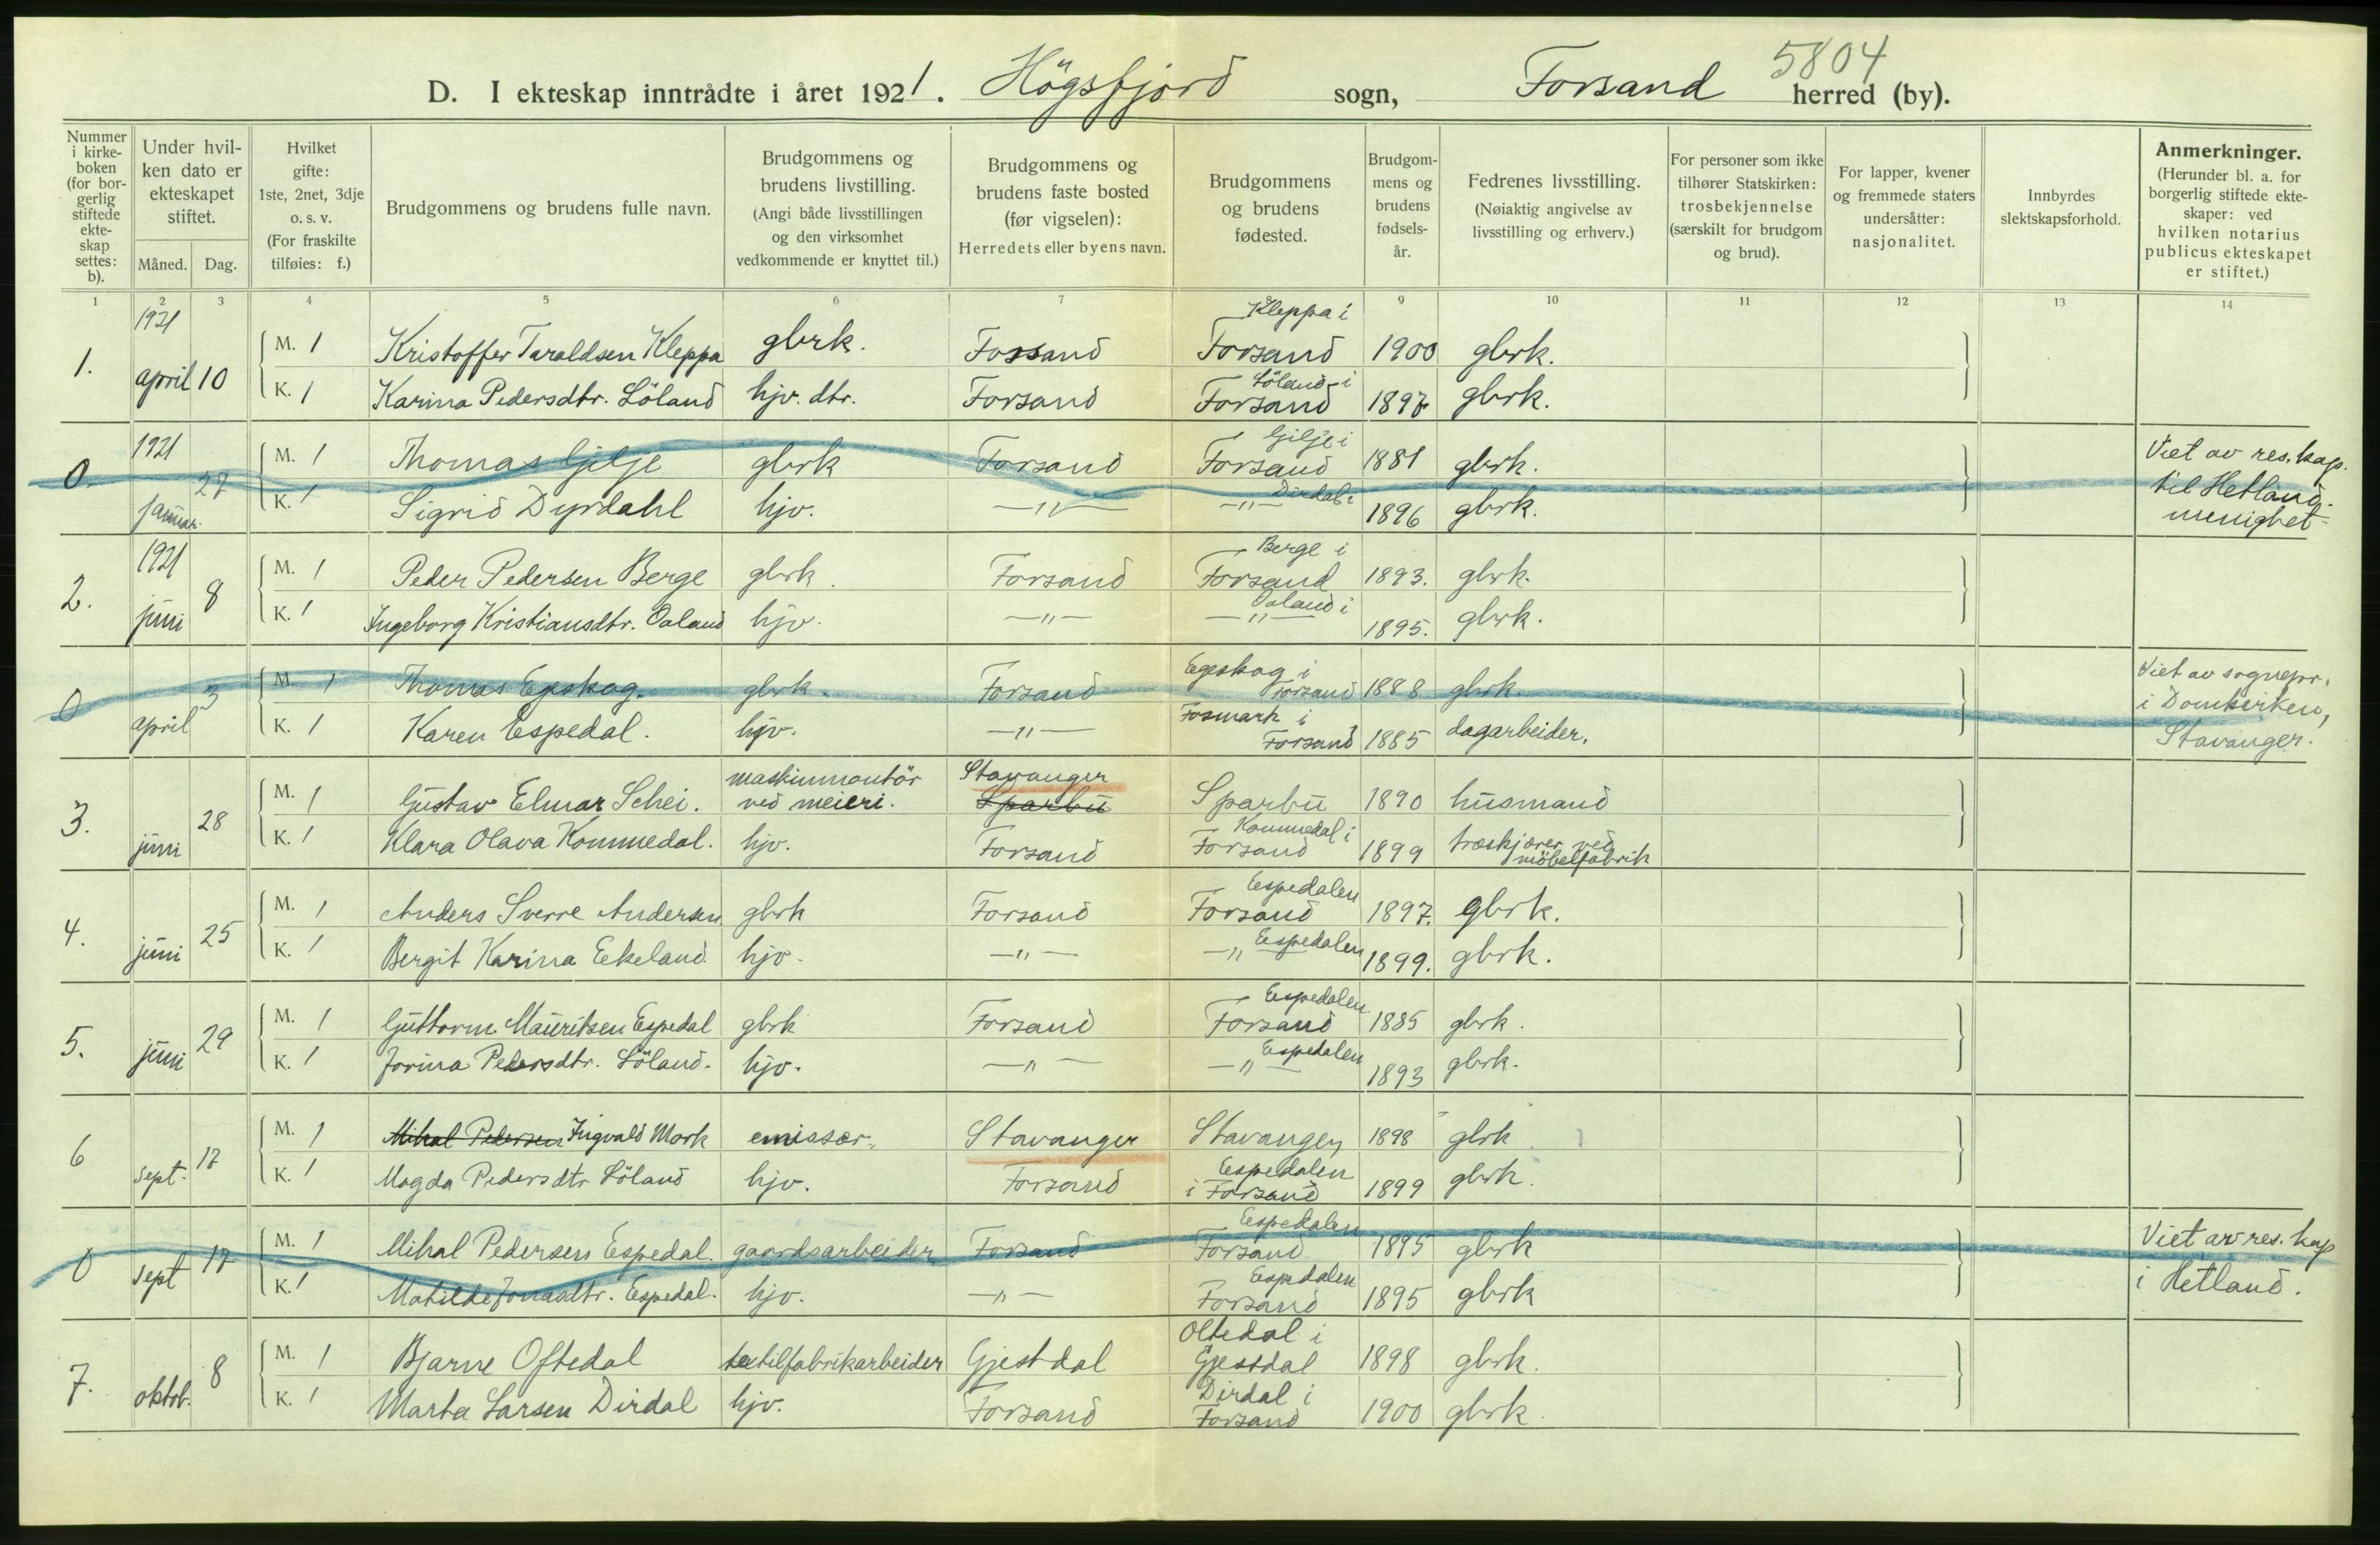 5804
D. I ekteskap inntrådte i året 1921. Högsfjord sogn, Forsand herred (by).
Nummer i kirke- boken (for bor- gerlig stiftede ekte- skap settes: b).
Under hvil- ken dato er ekteskapet stiftet.
Måned. Dag.
Hvilket gifte: 1ste, 2net, 3dje o. s. v. (For fraskilte tilføies: f.)
Brudgommens og brudens fulle navn.
Brudgommens og brudens livstilling. (Angi både livsstillingen og den virksomhet vedkommende er knyttet til.)
Brudgommens og brudens faste bosted (før vigselen): Herredets eller byens navn.
Brudgommens og brudens fødested.
Brudgom- mens og brudens fødsels- år.
Fedrenes livsstilling. (Nøiaktig angivelse av livsstilling og erhverv.)
For personer som ikke tilhører Statskirken: trosbekjennelse (særskilt for brudgom og brud).
For lapper, kvener og fremmede staters undersåtter: nasjonalitet.
Innbyrdes slektskapsforhold.
Anmerkninger. (Herunder bl. a. for borgerlig stiftede ekte- skaper: ved hvilken notarius publicus ekteskapet er stiftet.)
1 2 3 4 5 6 7 9 10 11 12 13 14
1921 Kleppa i
1. M. 1 Kristoffer Taraldsen Kleppa gbrk. Forsand Forsand 1900 gbrk.
april 10 Löland i
K. 1 Karina Pedersdtr. Löland hjv. dtr. Forsand Forsand 1897 gbrk.
1921 Gilje i
0. 27 M. 1 Thomas Gilje gbrk Forsand Forsand 1881 gbrk. Viet av res. kap.
Dirdal i til Hetland
januar. K. 1 Sigrid Dyrdahl hjv. —"— —"— 1896 gbrk. menighet
1921 Berge i
2. 8 M. 1 Peder Pedersen Berge gbrk. Forsand Forsand 1893. gbrk.
Oaland i
juni K. 1 Ingeborg Kristiansdtr. Oaland hjv. —"— —"— 1895. gbrk.
Egeskog i Viet av sognepr.
0 3 M. 1 Thomas Egeskog. gbrk. Forsand Forsand 1888 gbrk. i Domkirken,
Fosmark i
april K. 1 Karen Espedal. hjv. —"— Forsand 1885 dagarbeider. Stavanger.
maskinmontör Stavanger
3. 28 M. 1 Gustav Elmar Schei. ved meieri. Sparbu Sparbu 1890 husmand
Kommedal i træskjærer ved
juni K. 1 Klara Olava Kommedal. hjv. Forsand Forsand 1899 möbelfabrik
Espedalen
4. 25 M. 1 Anders Sverre Andersen gbrk Forsand Forsand 1897. gbrk.
Espedalen
juni K. 1 Bergit Karina Eekeland. hjv. —"— —"— 1899. gbrk.
Espedalen
5. 29 M. 1 Guttorm Mauritsen Espedal gbrk Forsand Forsand 1885 gbrk.
Espedalen
juni K. 1 Jorina Pedersdtr. Löland. hjv. —"— —"— 1893 gbrk.
6 17 M. 1 Mikal Pedersen Ingvald Mork emissær. Stavanger Stavanger 1898 gbrk.
Espedalen
sept. K. 1 Magda Pedersdtr Löland hjv. Forsand i Forsand 1899 gbrk.
Espedalen Viet av res. kap
0 17 M. 1 Mikal Pedersen Espedal gaardsarbeider Forsand Forsand 1895 gbrk
Espedalen
sept K. 1 Matilde Jonasdtr. Espedal. hjv. —"— Forsand 1895 gbrk i Hetland.
Oltedal i
7. 8 M. 1 Bjarne Oftedal textilfabrikarbeider Gjestdal Gjestdal 1898 gbrk.
Dirdal i
oktob. K. 1 Marta Larsen Dirdal hjv. Forsand Forsand 1900 gbrk.